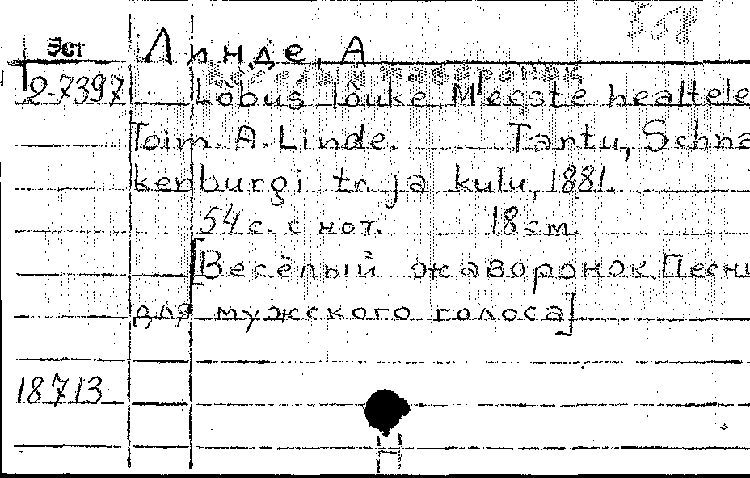 Эст Линде, А
2-7397 Lõbus lõuke Meeste healtele
Toim. A. Linde. Tartu, Schna
kenburgi tr. ja kulu, 1881.
54 с. с нот. 18 см.
[Весёлый жаворонок. Песни
для мужского голоса]
18713